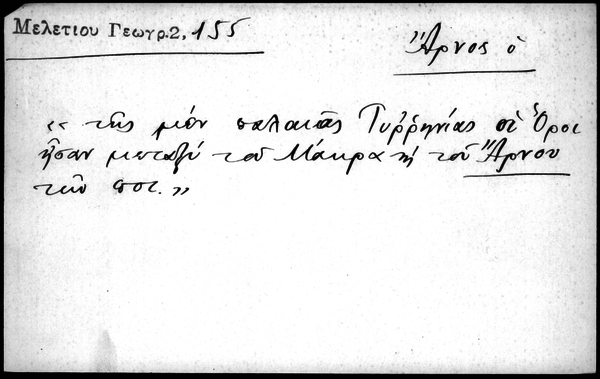 Μελετίου Γεωγρ. 2, 155
Ἄρνος ὁ
« τῆς μὲν παλαιᾶς Τυῤῥηνίας οἱ Ὅροι
ἦσαν μεταξὺ τοῦ Μάκρα κỳ τοῦ Ἄρνου
τῶν ποτ. »